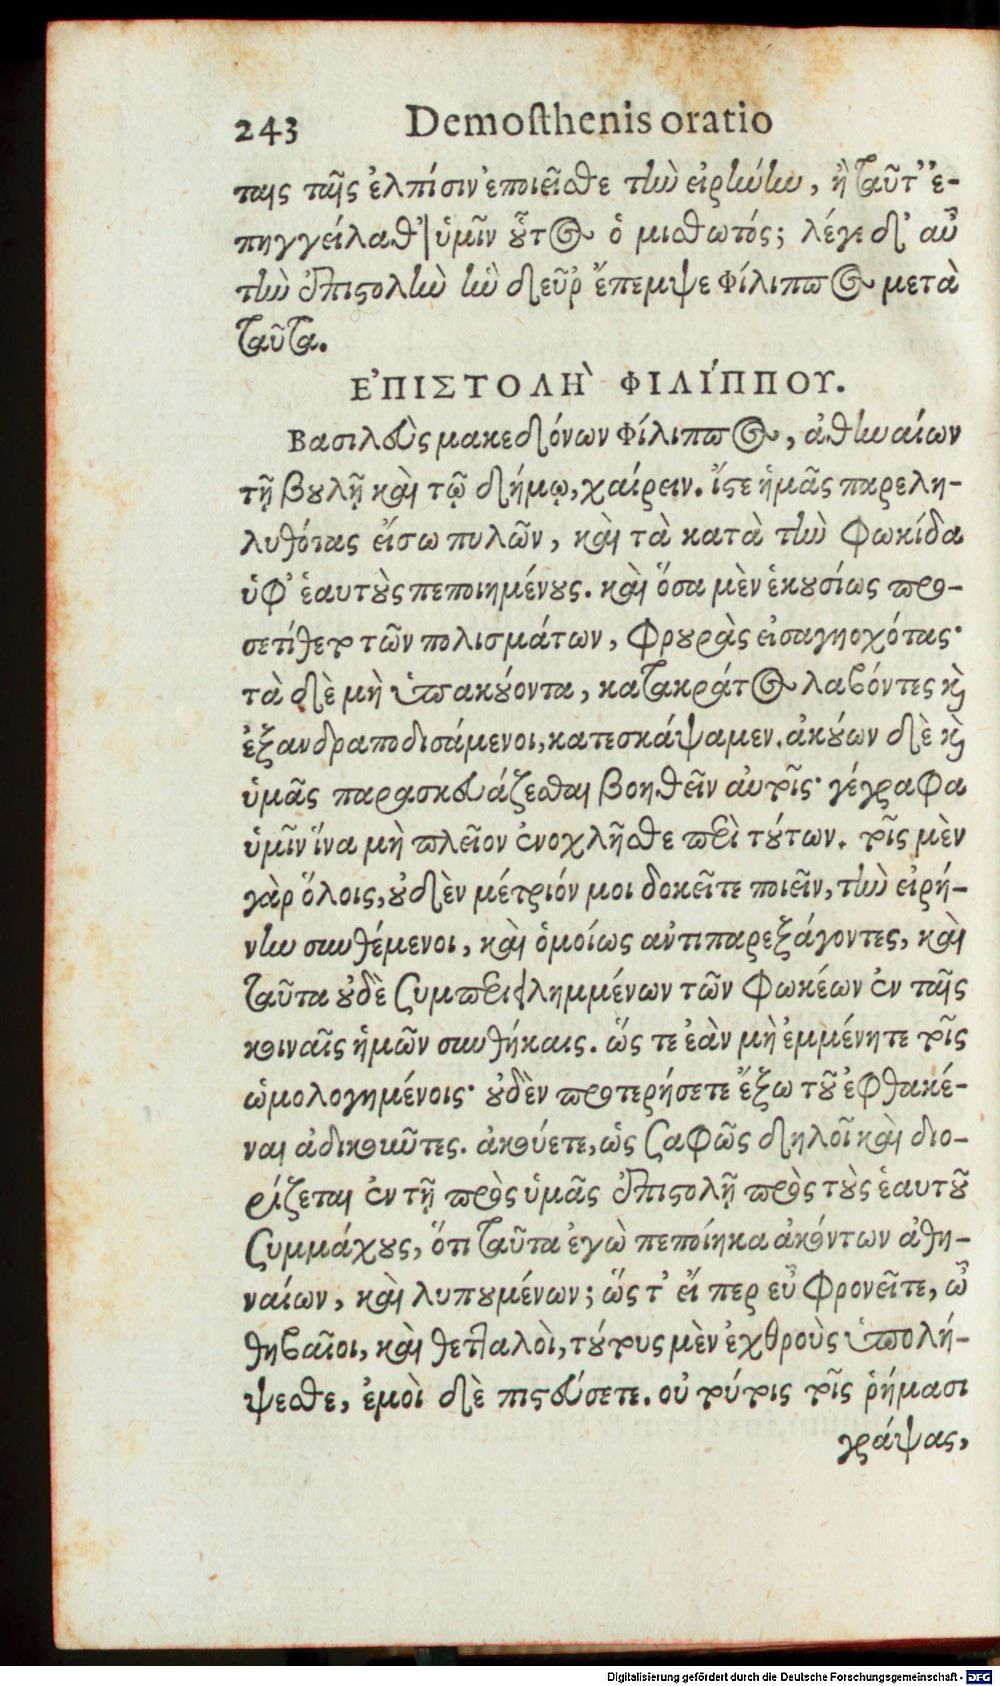 243 Demosthenis oratio
ταις ταῖς ἐλπίσιν ἐποιεῖσθε τὴν εἰρήνην, ἢ ταῦτ’ ἐ-
πηγγείλαθ’ ὑμῖν οὗτος ὁ μισθωτός; λέγε δ’ αὖ
τὴν ἐπιστολὴν ἣν δεῦρ’ ἔπεμψε Φίλιππος μετὰ
ταῦτα.
ΕΠΙΣΤΟΛῊ ΦΙΛΊΠΠΟΥ.
Βασιλεὺς μακεδόνων Φίλιππος, ἀθηναίων
τῇ βουλῇ καὶ τῷ δήμῳ, χαίρειν. ἴστε ἡμᾶς παρελη-
λυθότας εἴσω πυλῶν, καὶ τὰ κατὰ τὴν Φωκίδα
ὑφ’ ἑαυτοὺς πεποιημένους. καὶ ὅσα μὲν ἑκουσίως προ-
σετίθετο τῶν πολισμάτων, φρουρὰς εἰσαγηοχότας·
τὰ δὲ μὴ ὑπακούοντα, κατακράτος λαβόντες καὶ
ἐξανδραποδισάμενοι, κατεσκάψαμεν. ἀκούων δὲ καὶ
ὑμᾶς παρασκευάζεσθαι βοηθεῖν αὐτοῖς· γέγραφα
ὑμῖν ἵνα μὴ πλεῖον ἐνοχλῆσθε περὶ τούτων. τοῖς μὲν
γὰρ ὅλοις, οὐδὲν μέτριόν μοι δοκεῖτε ποιεῖν, τὴν εἰρή-
νην συνθέμενοι, καὶ ὁμοίως ἀντιπαρεξάγοντες, καὶ
ταῦτα οὐδὲ συμπεριειλημμένων τῶν Φωκέων ἐν ταῖς
κοιναῖς ἡμῶν συνθήκαις. ὥς τε ἐὰν μὴ ἐμμένητε τοῖς
ὡμολογημένοις· οὐδὲν προτερήσετε ἔξω τοῦ ἐφθακέ-
ναι ἀδικοῦντες. ἀκούετε, ὡς σαφῶς δηλοῖ καὶ διο-
ρίζεται ἐν τῇ πρὸς ὑμᾶς ἐπιστολῇ πρὸς τοὺς ἑαυτοῦ
συμμάχους, ὅτι ταῦτα ἐγὼ πεποίηκα ἀκόντων ἀθη-
ναίων, καὶ λυπουμένων; ὥς τ’ εἴ περ εὖ φρονεῖτε, ὦ
θηβαῖοι, καὶ θετταλοὶ, τούτους μὲν ἐχθροὺς ὑπολή-
ψεσθε, ἐμοὶ δὲ πιστεύσετε. οὐ τούτοις τοῖς ῥήμασι
γράψας,
Digitalisierung gefördert durch die Deutsche Forschungsgemeinschaft - DFG